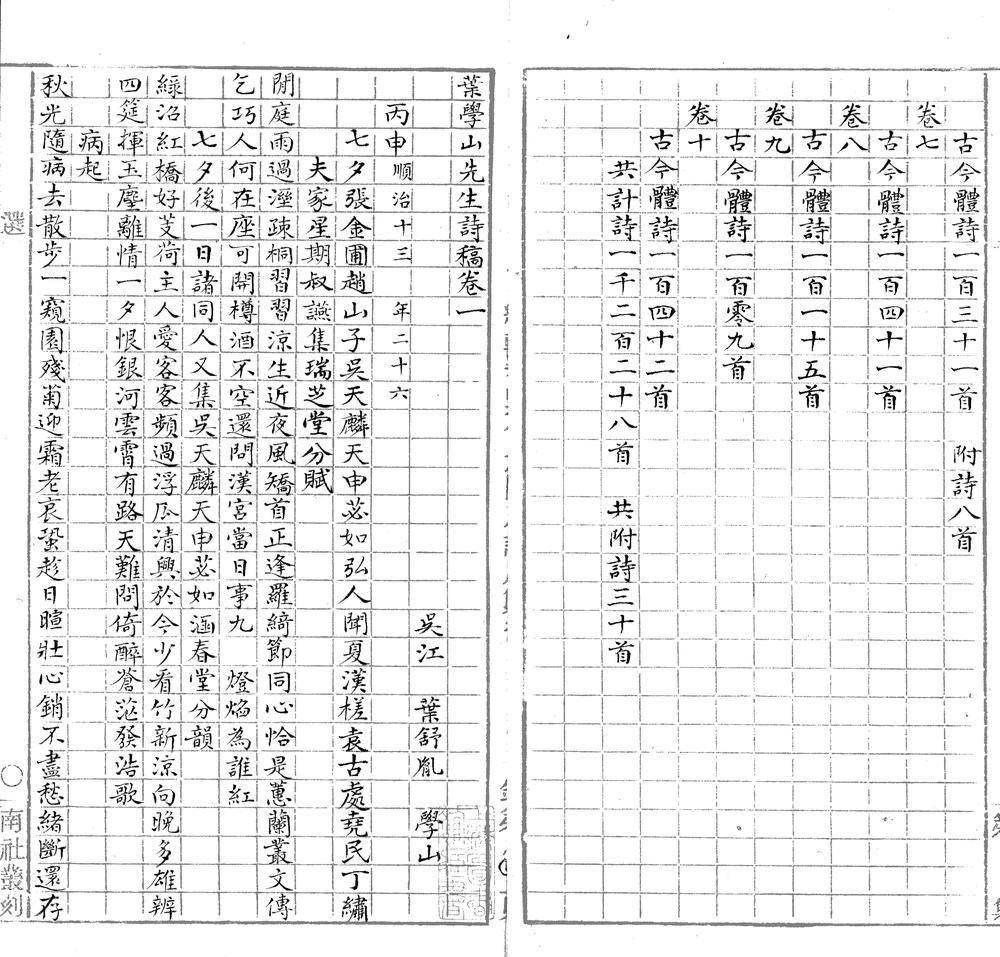 卷七
古今體詩一百三十一首 附詩八首
卷八
古今體詩一百四十一首
卷九
古今體詩一百一十五首
卷十
古今體詩一百零九首
古今體詩一百四十二首
共計詩一千二百二十八首 共附詩三十首
葉學山先生詩稿卷一
吳江 葉舒胤 學山
丙申順治十三 年二十六
七夕張金圃趙山子吳天麟天申苾如弘人聞夏漢槎袁古處堯民丁繡
夫家星期叔讌集瑞芝堂分賦
閒庭雨過溼疎桐習習涼生近夜風矯首正逢羅綺節同心恰是蕙蘭叢文傳
乞巧人何在座可開樽酒不空還問漢宮當日事九 燈焰為誰紅
七夕後一日諸同人又集吳天麟天申苾如涵春堂分韻
綠沼紅橋好芰荷主人愛客客頻過浮瓜清興於今少看竹新涼向晚多雄辨
四筵揮玉麈離情一夕恨銀河雲霄有路天難問倚醉蒼茫發浩歌
病起
秋光隨病去散步一窺園殘菊迎霜老哀蛩趁日暄壯心銷不盡愁緒斷還存
選
南社叢刻